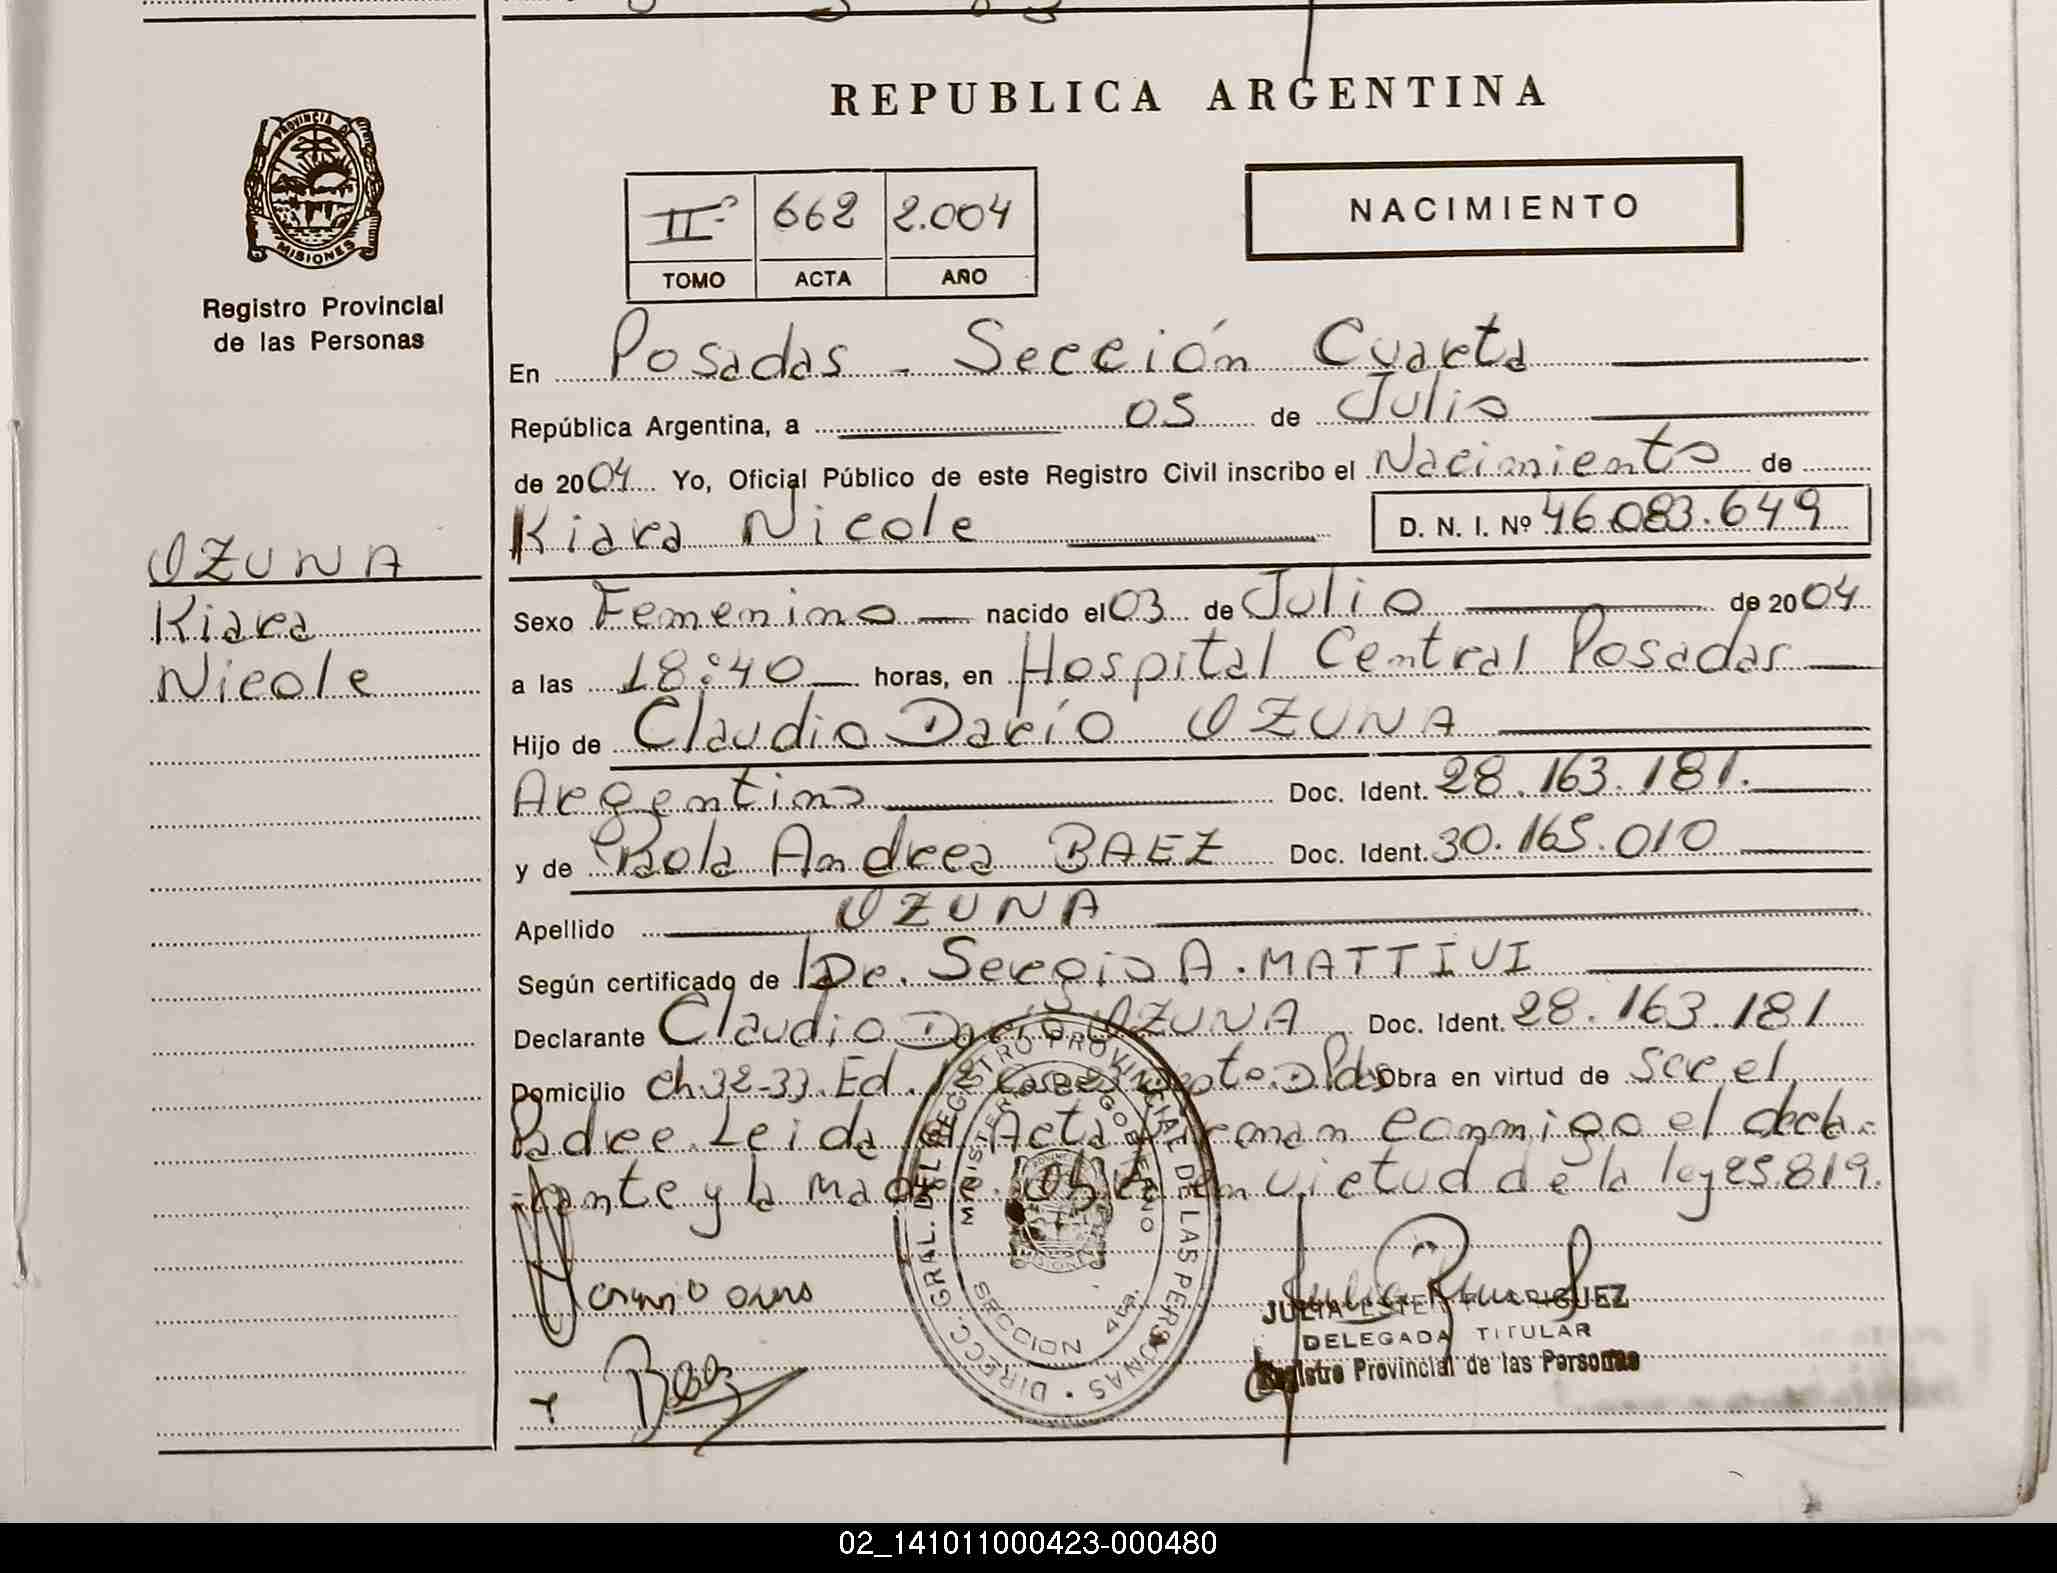 REPUBLICA ARGENTINA
PROVINCIA DE
MISIONES
Registro Provincial
de las Personas
IIº 662 2.004
TOMO ACTA AÑO
NACIMIENTO
En Posadas - Sección Cuarta
República Argentina, a 05 de Julio
de 2004 Yo, Oficial Público de este Registro Civil inscribo el Nacimiento de
Kiara Nicole D. N. I. Nº 46.083.649
OZUNA
Kiara
Nicole
Sexo Femenino nacido el 03 de Julio de 2004
a las 18:40 horas, en Hospital Central Posadas
Hijo de Claudio Darío OZUNA
Argentino Doc. Ident. 28.163.181.
y de Paola Andrea BAEZ Doc. Ident. 30.165.010
Apellido OZUNA
Según certificado de Dr. Sergio A. MATTIVI
Declarante Claudio Darío OZUNA Doc. Ident. 28.163.181
Domicilio Ch. 32-33. Ed. Obra en virtud de ser el
Padre. Leida el Acta firman conmigo el decla-
rante y la madre. en virtud de la ley 25.819.
DIRECC. GRAL. DEL REGISTRO PROVINCIAL DE LAS PERSONAS
MINISTERIO DE GOBIERNO
SECCION 4ta.
Baez
JULIA ESTER RODRIGUEZ
DELEGADA TITULAR
Registro Provincial de las Personas
02_141011000423-000480